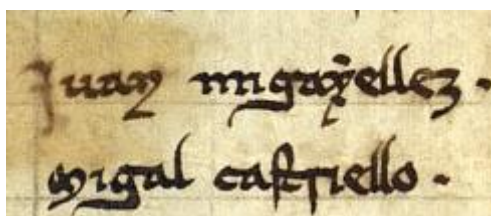 Juan migaẏellez.
migal castiello.